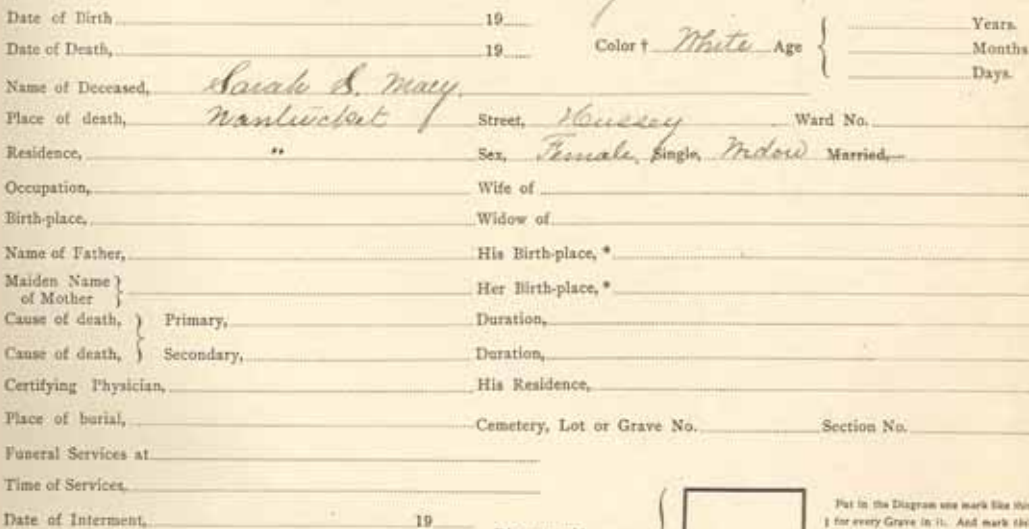 Date of Birth 19
Date of Death, 19 Color † White Age { Years.
Months
Days.
Name of Deceased, Sarah S. Macy.
Place of death, Nantucket Street, Hussey Ward No.
Residence, " Sex, Female, Single, Widow Married,
Occupation, Wife of
Birth-place, Widow of
Name of Father, His Birth-place, *
Maiden Name of Mother } Her Birth-place, *
Cause of death, } Primary, Duration,
Cause of death, } Secondary, Duration,
Certifying Physician, His Residence,
Place of burial, Cemetery, Lot or Grave No. Section No.
Funeral Services at
Time of Services,
Date of Interment, 19
Put in the Diagram one mark like this
for every Grave in it. And mark